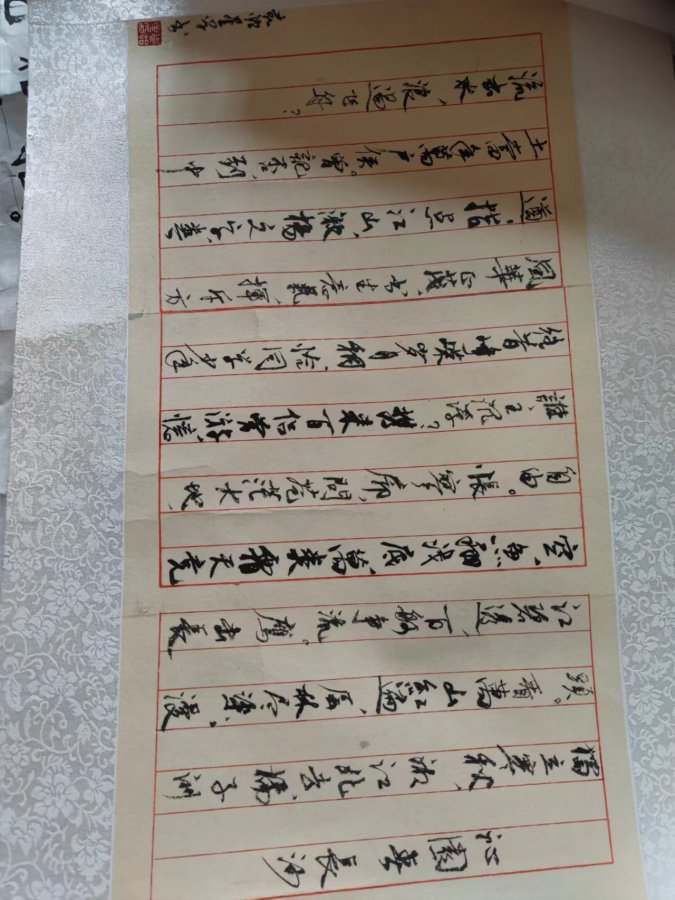 沁園春 長沙
獨立寒秋,湘江北去,橘子洲
頭。看萬山红遍,层林尽染,漫
江碧透,百舸争流。鹰击長
空,魚翔浅底,萬类霜天竞
自由。悵寥廓,問苍茫大地,
誰主沉浮?携来百侣曾游,憶
往昔峥嵘岁月稠。恰同学少年
風華正茂,书生意氣,揮斥方
遒。指点江山,激揚文字,粪
土當年萬户侯。曾記否,到中
流击水,浪遏飞舟?